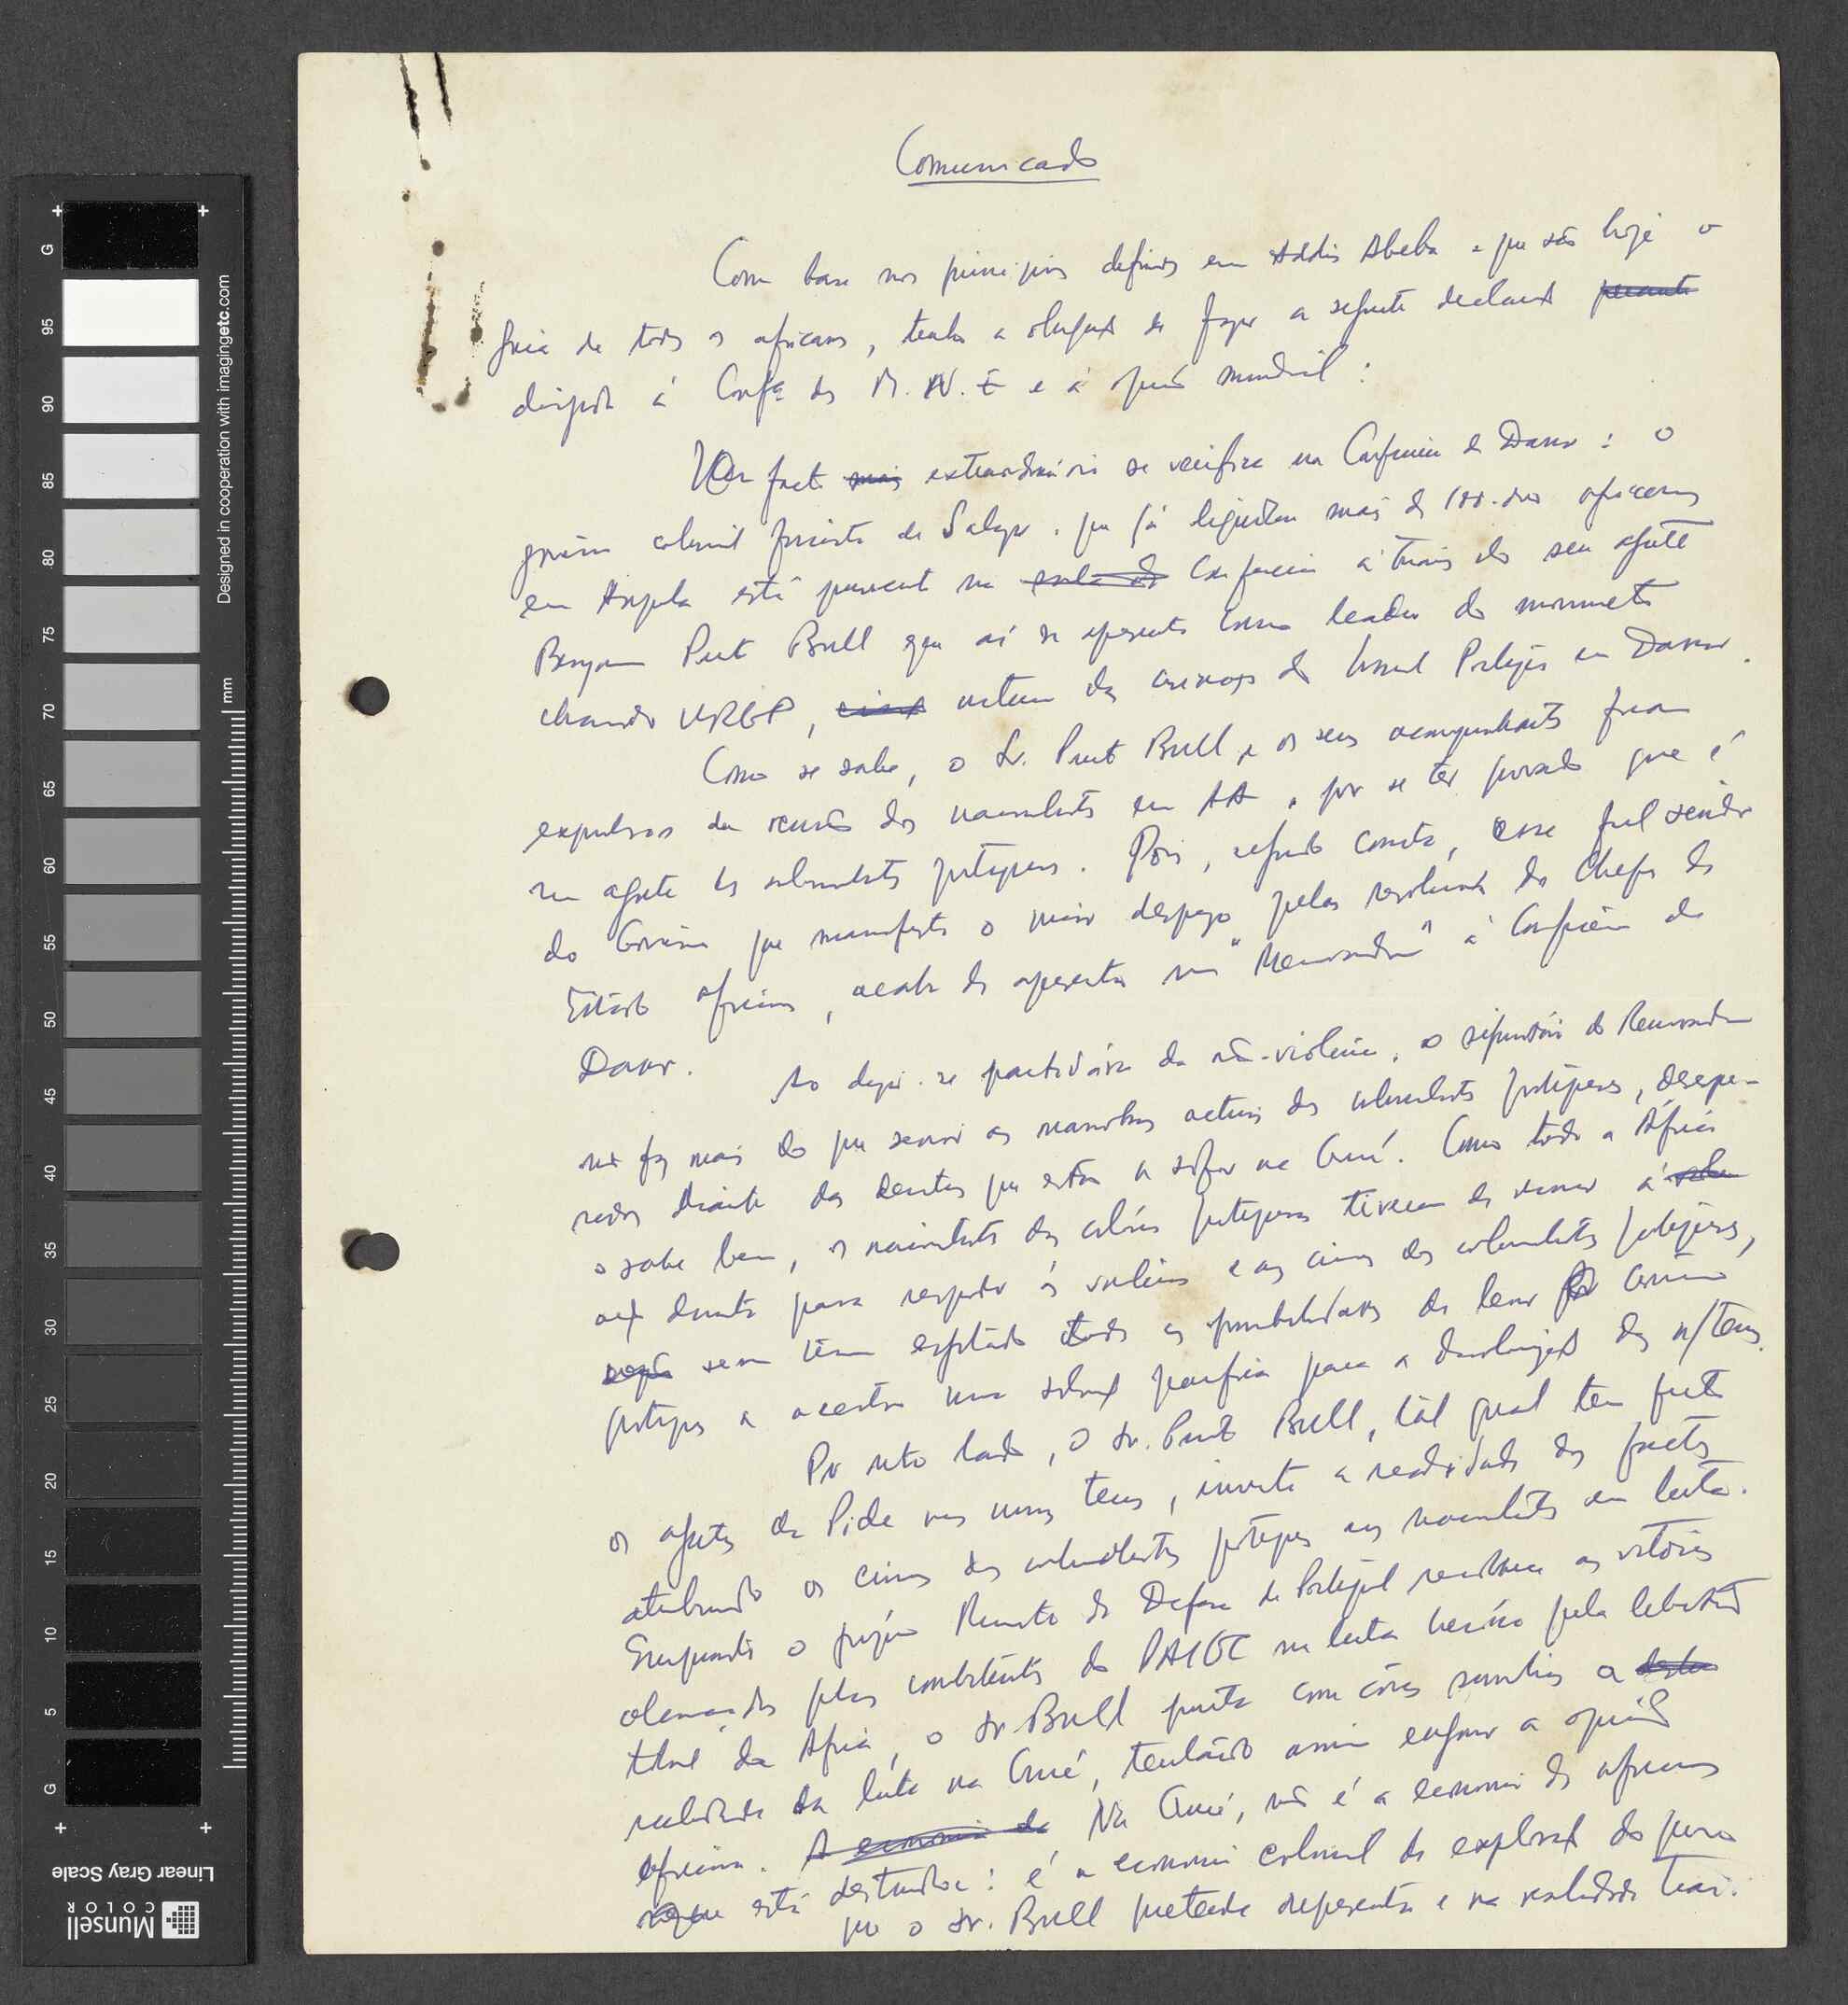 Comunicado
Com base nos principios definidos em Addis Abeba e que são hoje o
guia de todos os africanos, tenho a obrigação de fazer a seguinte declaração perante
dirigida à Confª dos M. N. E e à opinião mundial:
Um facto mais extraordinário se verifica na Conferência de Dakar: o
governo colonial fascista de Salazar, que já liquidou mais de 100.000 africanos
em Angola está presente na sala da Conferência através do seu agente
Benjamim Pinto Bull que aí se apresenta como leader do movimento
chamado URGP, nectum das do Consul Português em Dakar.
Como se sabe, o Sr. Pinto Bull e os seus acompanhantes foram
expulsos da reunião dos nacionalistas em AA, por se ter provado que é
um agente dos colonialistas portugueses. Pois, segundo consta, esse fiel servidor
do Governo que manifesta o maior desprezo pelas resoluções dos Chefes de
Estado africanos, acaba de apresentar um "Memorandum" à Conferência de
Dakar.
Ao dizer-se partidário da não-violência, o signatário do Memorandum
não faz mais do que servir as manobras actuais dos colonialistas portugueses, desespe-
rados diante das derrotas que estão a sofrer na Guiné. Como toda a África
o sabe bem, os nacionalistas das colónias portuguesas tiveram de recorrer à
acção directa para responder às violências e aos crimes dos colonialistas portugueses,
sem terem esgotado todas as possibilidades de levar o Governo
português a aceitar uma solução pacífica para a descolonização das n/ terras.
Por outro lado, o Sr. Pinto Bull, tál qual tem feito
os agentes da Pide nas nossas terras, inverte a realidade dos factos
atribuindo os crimes dos colonialistas portugueses aos nacionalistas em luta.
Enquanto o próprio Ministro da Defesa de Portugal reconhece as vitórias
alcançadas pelos combatentes do PAIGC na luta heróica pela libertação
total da Africa, o Sr. Bull pinta com côres sombrias a
realidade da luta na Guiné, tentando assim enganar a opinião
africana. A economia da Na Guiné, não é a economia dos africanos
que está destruída: é a economia colonial de exploração do povo
que o Sr. Bull pretende representar e na realidade trai.